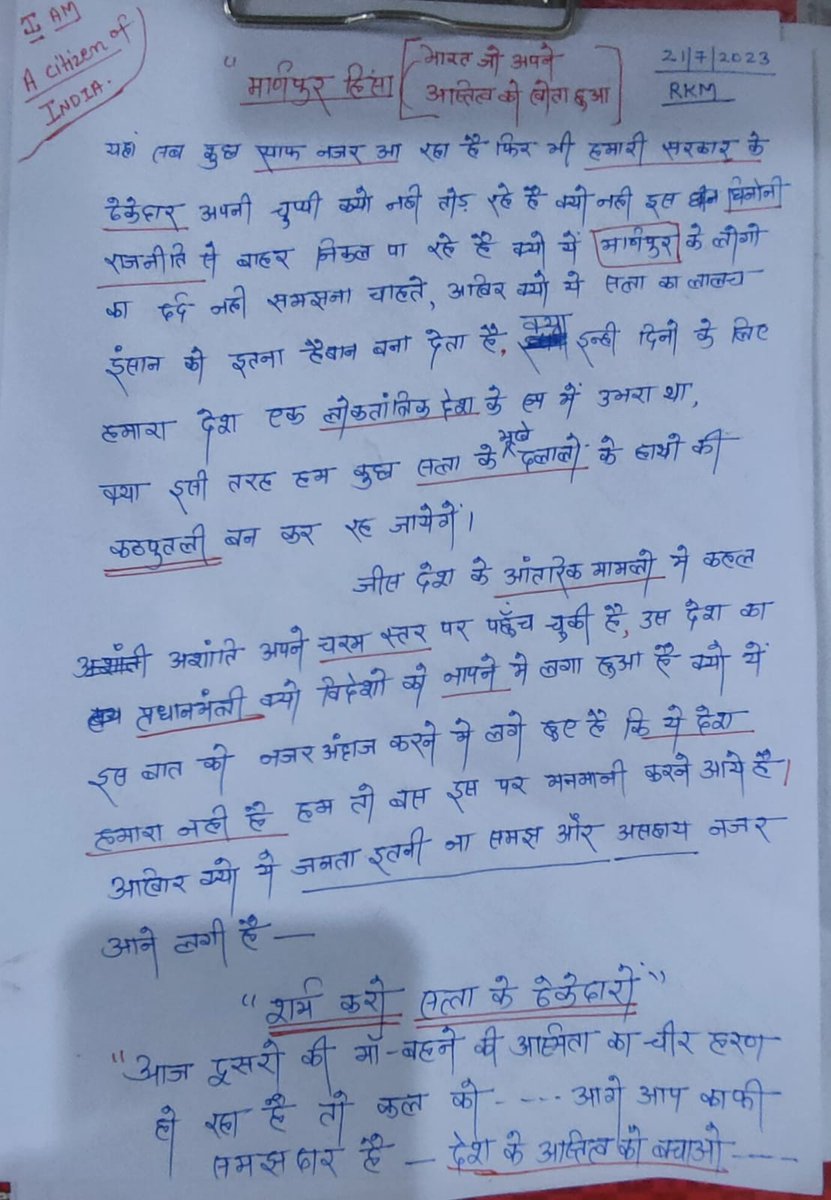 I AM
A citizen of
INDIA.
21/7/2023
RKM
"मणिपुर हिंसा [भारत जो अपने
अस्तित्व को खोता हुआ]
यहां सब कुछ साफ नजर आ रहा है फिर भी हमारी सरकार के
ठेकेदार अपनी चुप्पी क्यो नही तोड़ रहे है क्यो नही इस घिनोनी
राजनीति से बाहर निकल पा रहे है क्यो ये मणिपुर के लोगो
का दर्द नही समझना चाहते, आखिर क्यो ये सत्ता का लालच
इंसान को इतना हैवान बना देता है, क्या इन्ही दिनो के लिए
हमारा देश एक लोकतांत्रिक देश के रूप में उभरा था,
क्या इसी तरह हम कुछ सत्ता के भूखे दलालो के हाथो की
कठपुतली बन कर रह जायेगें।
जीस देश के आंतरिक मामलो मे कहल
अशांति अपने चरम स्तर पर पहुँच चुकी है, उस देश का
प्रधानमंत्री क्यो विदेशो को नापने मे लगा हुआ है क्यो ये
इस बात को नजर अंदाज करने मे लगे हुए है कि ये देश
हमारा नही है हम तो बस इस पर मनमानी करने आये है।
आखिर क्यो ये जनता इतनी ना समझ और असहाय नजर
आने लगी है —
"शर्म करो सत्ता के ठेकेदारों"
"आज दूसरो की माँ-बहने की अस्मिता का चीर हरण
हो रहा है तो कल को ----- आगे आप काफी
समझदार है — देश के अस्तित्व को बचाओ ----